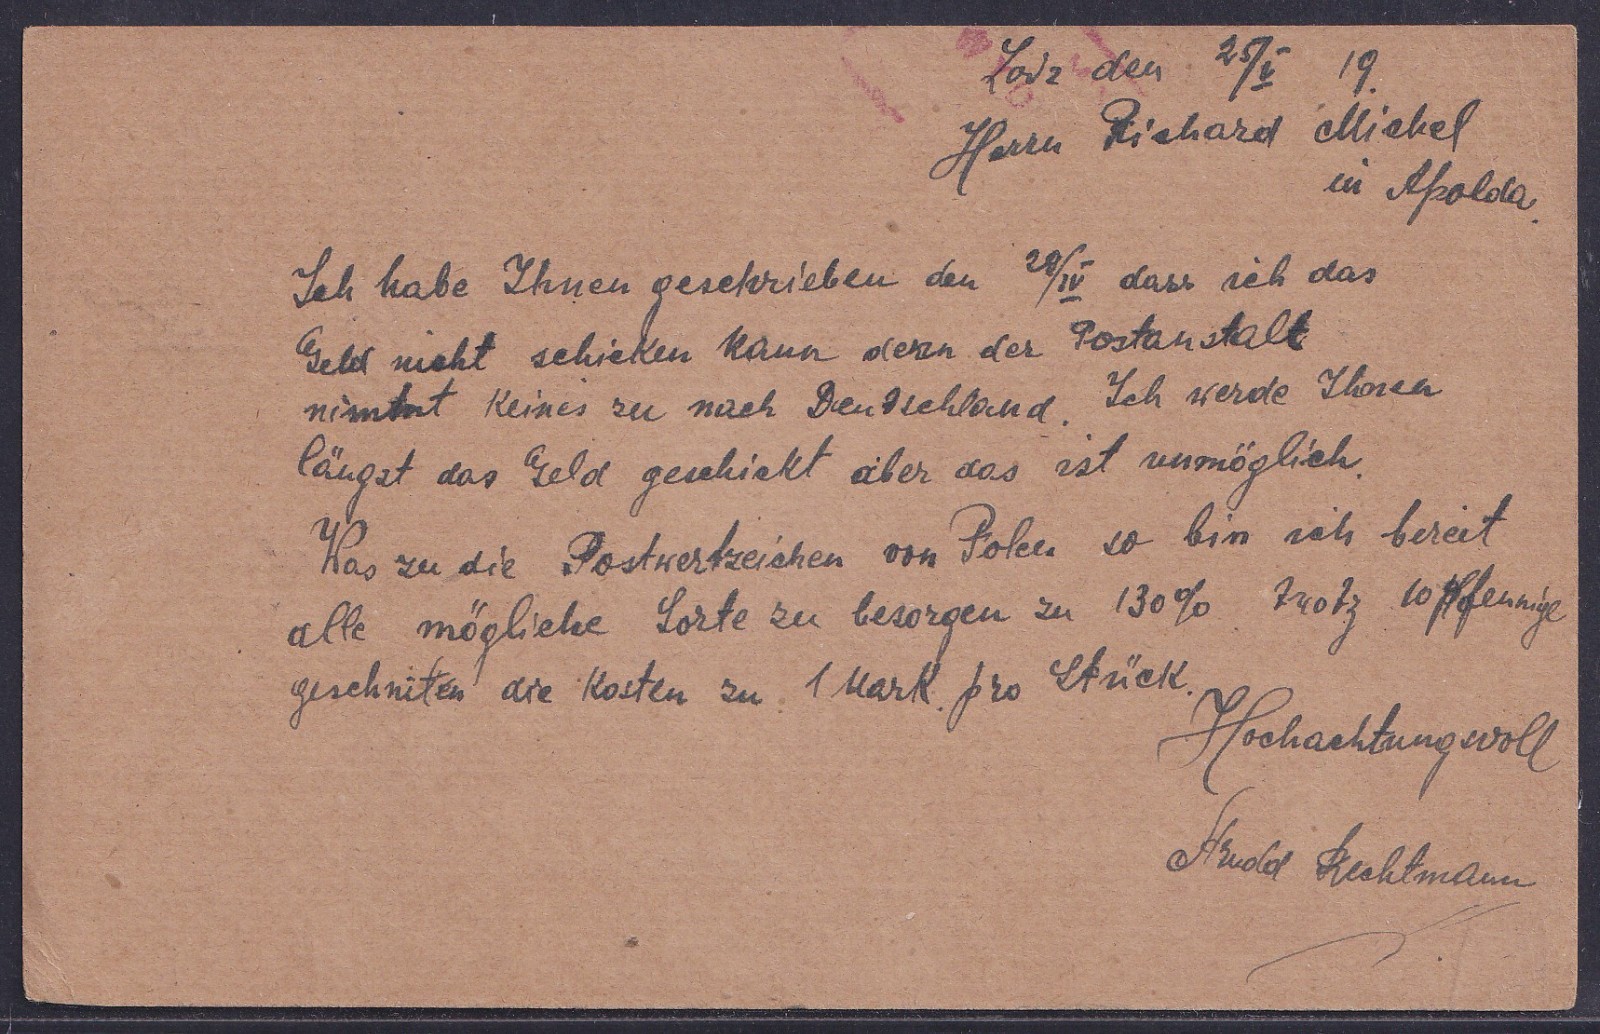 Lodz den 25/V 19.
Herrn Richard Michel
in Apolda.
Ich habe Ihnen geschrieben den 28/IV dass ich das
Geld nicht schicken kann denn der Postanstalt
nimmt keines zu nach Deudschland. Ich werde Ihnen
längst das Geld geschickt aber das ist unmöglich.
Was zu die Postwertzeichen von Polen so bin ich bereit
alle mögliche Sorte zu besorgen zu 130% trotz 10 Pfennige
geschniten die kosten zu 1 Mark. pro Stück.
Hochachtungsvoll
Rechtmann